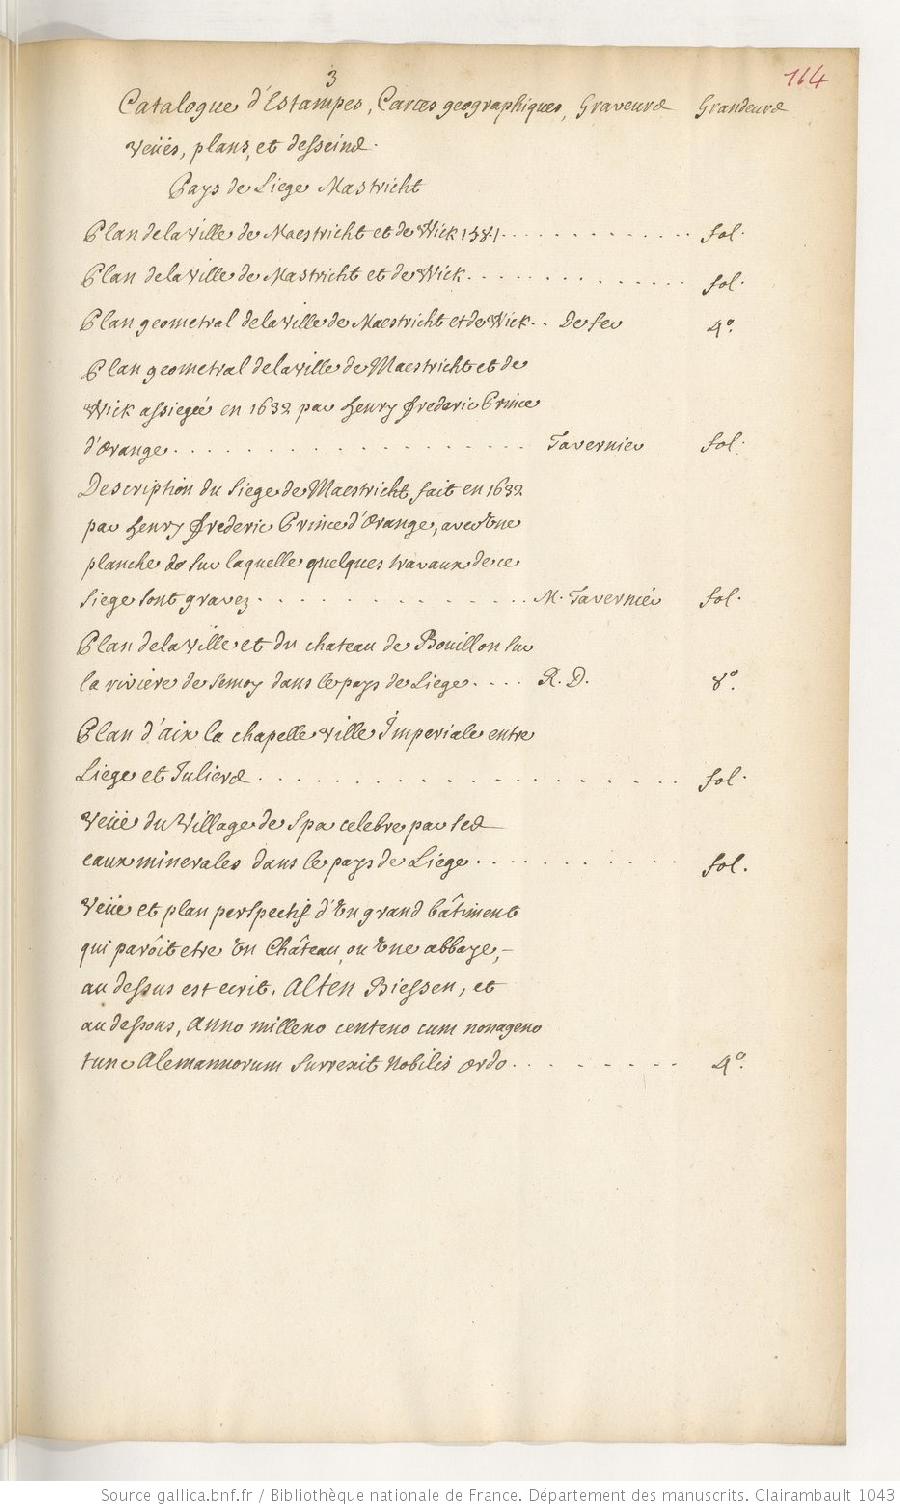 3
164
Catalogue d'Estampes, Cartes geographiques, Graveurs Grandeurs
Veües, plans, et desseins.
Pays de Liege Mastricht
Plan de la Ville de Maestricht et de Wick 1581. . . . . . . . . . . . . . fol.
Plan de la Ville de Mastricht et de Wick. . . . . . . . . . . . . . . fol.
Plan geometral de la Ville de Maestricht et de Wick. . De fer 4°.
Plan geometral de la Ville de Maestricht et de
Wick assiegée en 1632 par Henry Frederic Prince
d'Orange. . . . . . . . . . . . . . . . Tavernier fol.
Description du Siege de Maestricht, fait en 1632
par Henry Frederic Prince d'Orange, avec Une
planche de sur laquelle quelques travaux de ce
Siege sont gravez. . . . . . . . . . . . . M. Tavernier fol.
Plan de la Ville et du chateau de Bouillon sur
la riviere de Semoy dans le pays de Liege. . . . R. D. 8°.
Plan d'aix la chapelle Ville Imperiale entre
Liege et Juliers. . . . . . . . . . . . . . . . . . . fol.
Veüe du Village de Spa celebre par ses
eaux minerales dans le pays de Liege. . . . . . . . . . fol.
Veüe et plan perspectif d'Un grand bâtiment
qui parôit etre Un Château, ou Une abbaye,-
au dessus est ecrit. Alten Biessen, et
au dessous, Anno milleno centeno cum nonageno
tunc Alemannorum Surrexit Nobilis ordo. . . . . . . . . 4°.
Source gallica.bnf.fr / Bibliothèque nationale de France. Département des manuscrits. Clairambault 1043